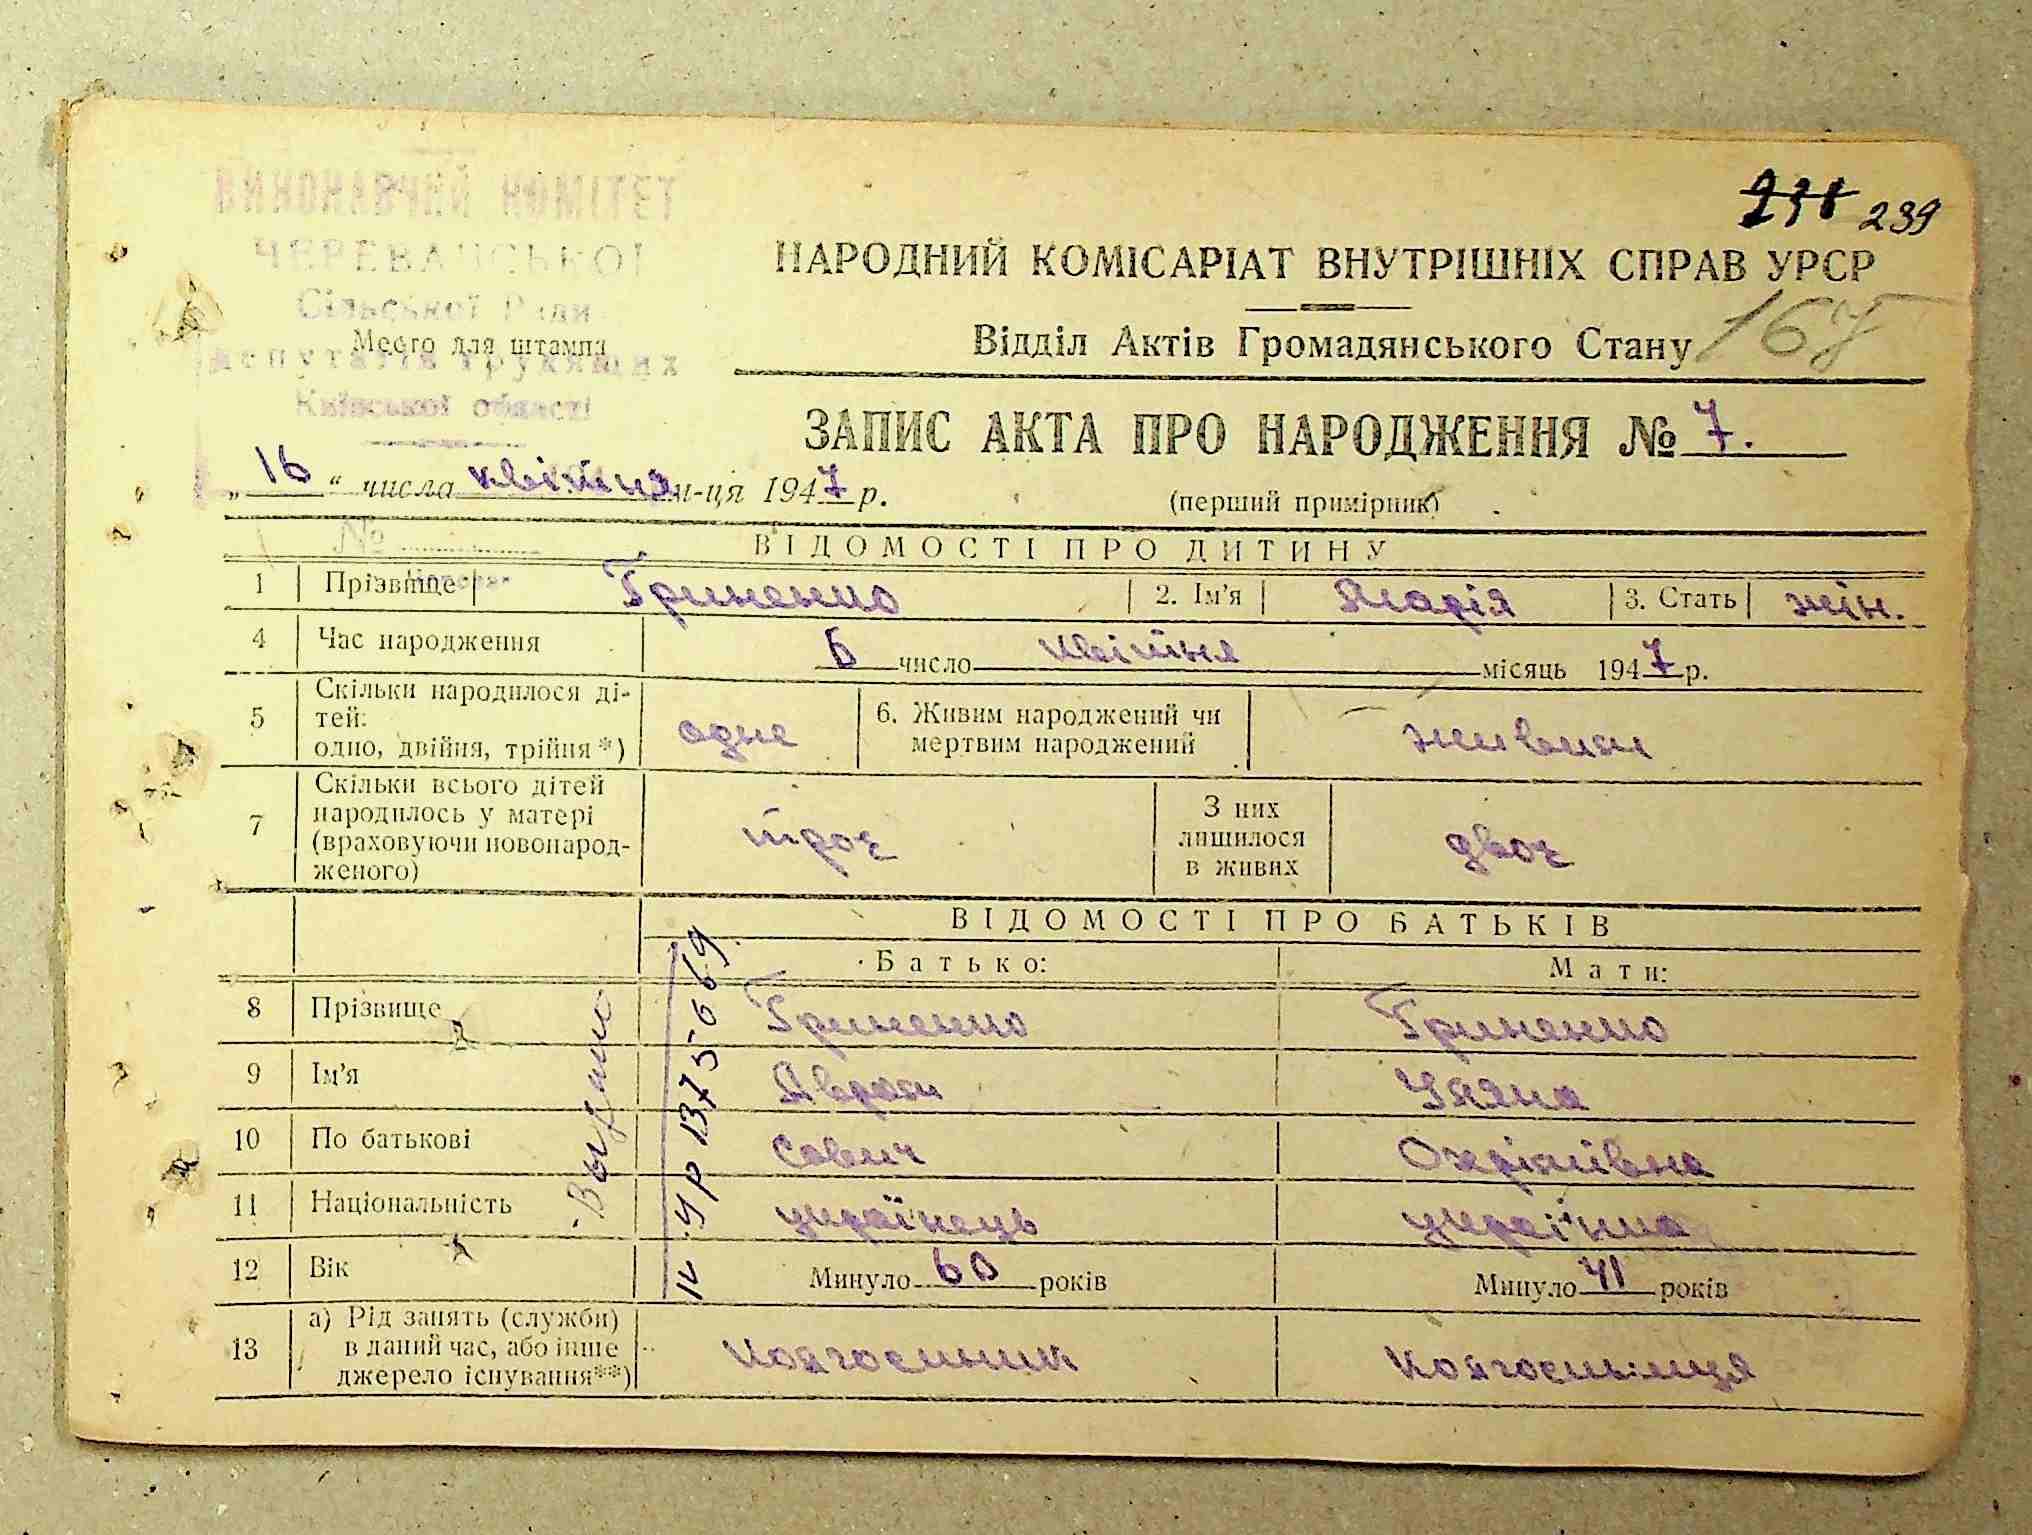 ВИКОНАВЧИЙ КОМІТЕТ
ЧЕРЕВАНСЬКОЇ
Сільської Ради
депутатів трудящих
Київської області
Место для штампа
231 239
НАРОДНИЙ КОМІСАРІАТ ВНУТРІШНІХ СПРАВ УРСР
Відділ Актів Громадянського Стану
167
ЗАПИС АКТА ПРО НАРОДЖЕННЯ № 7.
„16“ числа квітня м-ця 1947 р.
(перший примірник)
№
ВІДОМОСТІ ПРО ДИТИНУ
1 Прізвище Гриненко 2. Ім'я Марія 3. Стать жін.
4 Час народження 6 число квітня місяць 1947 р.
5 Скільки народилося ді-
тей:
одно, двійня, трійня *) одне 6. Живим народжений чи
мертвим народжений живим
7 Скільки всього дітей
народилось у матері
(враховуючи новонарод-
женого) троє З них
лишилося
в живих двоє
ВІДОМОСТІ ПРО БАТЬКІВ
Батько: Мати:
8 Прізвище Гриненко Гриненко
9 Ім'я Аврам Уляна
10 По батькові Савич Охрімівна
11 Національність українець українка
12 Вік Минуло 60 років Минуло 41 років
13 а) Рід занять (служби)
в даний час, або інше
джерело існування**) колгоспник колгоспниця
Выдано
УР 1375669